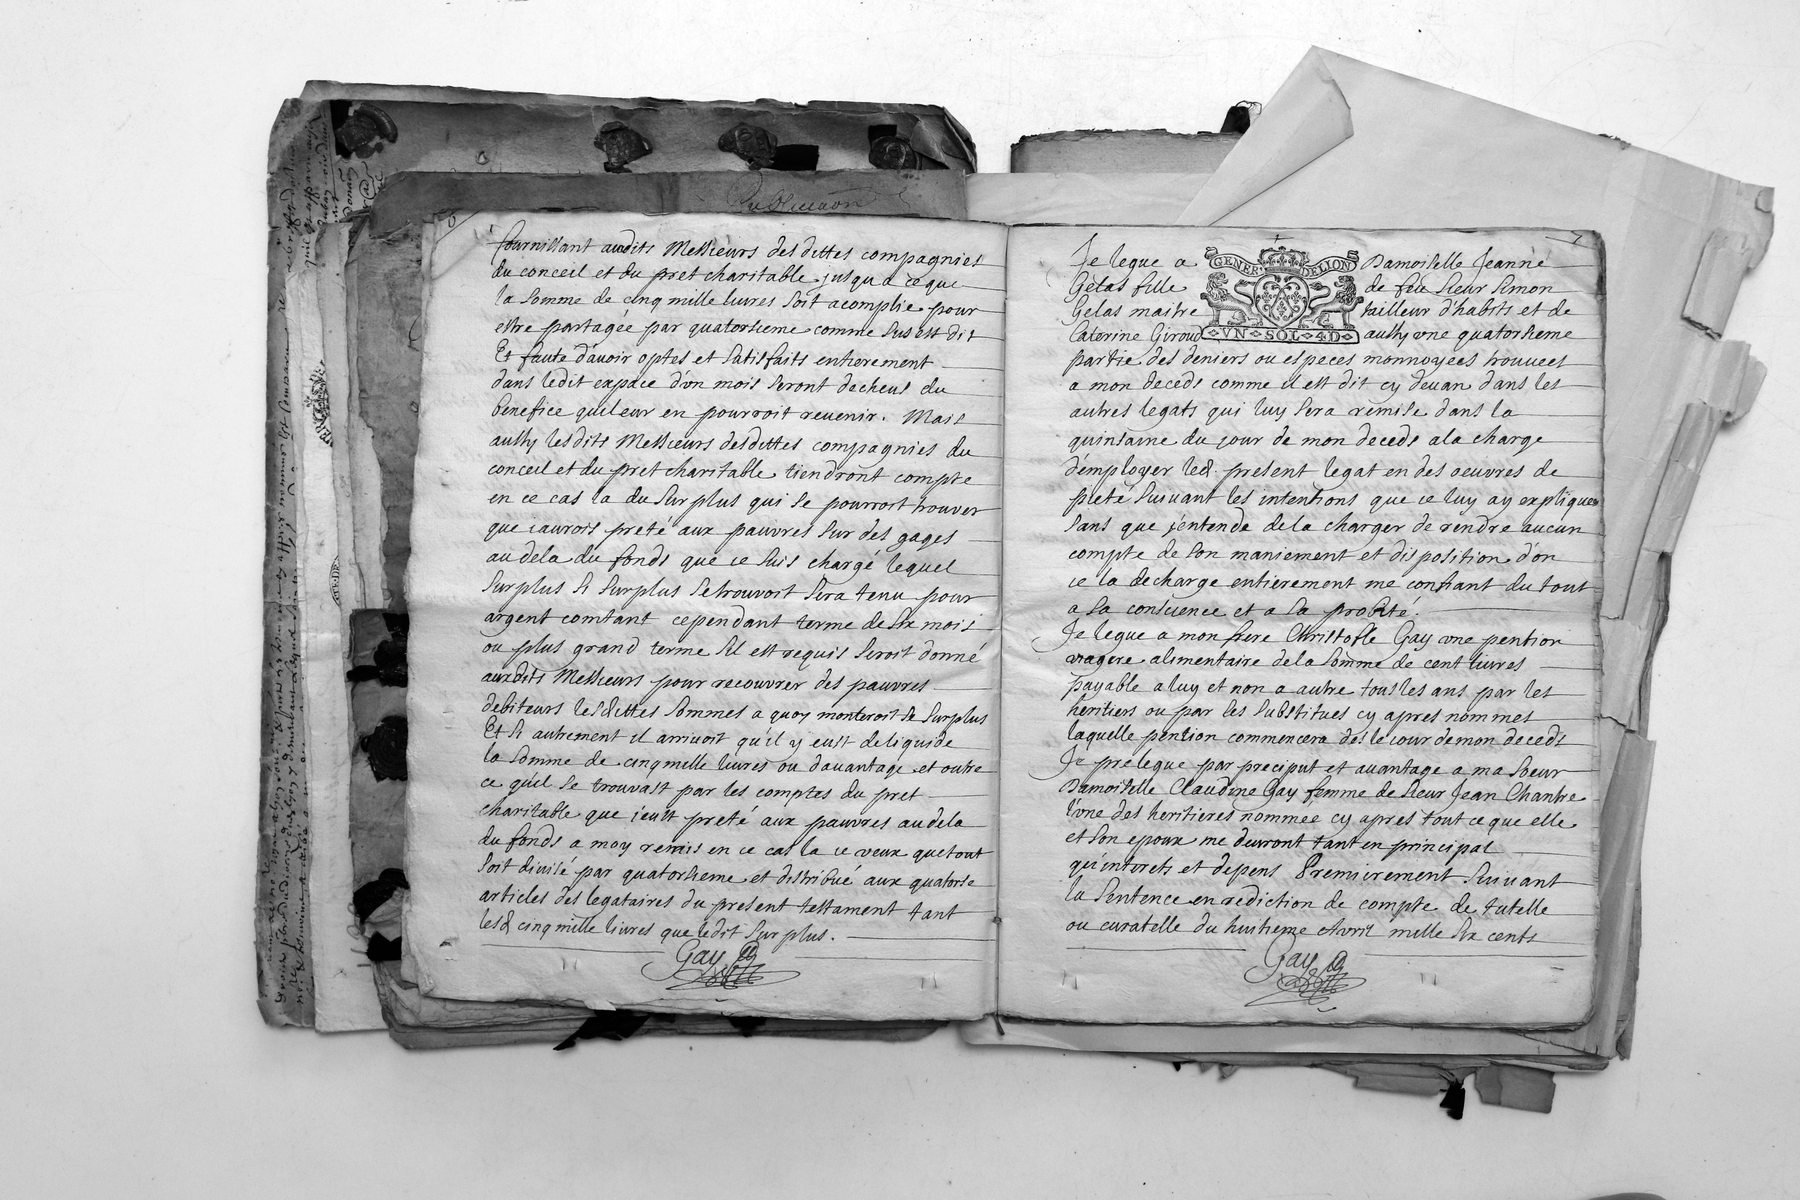 6
fournissant ausdits Messieurs desdittes compagnies
du conceil et du pret charitable jusqu'a ce que
la somme de cinq mille livres soit acomplie pour
estre partagée par quatorsieme comme sus est dit
Et faute d'avoir optes et satisfaits entierement
dans ledit espace d'un mois seront decheus du
benefice qui leur en pourroit revenir. Mais
aussy lesdits Messieurs desdittes compagnies du
conceil et du pret charitable tiendront compte
en ce cas la du surplus qui se pourroit trouver
que j'aurois preté aux pauvres sur des gages
au dela du fonds que je suis chargé lequel
surplus si surplus se trouvoit sera tenu pour
argent comtant cependant terme de six mois
ou plus grand terme s'il est requis seroit donné
ausdits Messieurs pour recouvrer des pauvres
debiteurs lesdittes sommes a quoy monteroit le surplus
Et si autrement il arrivoit qu'il y eust de liquide
la somme de cinq mille livres ou davantage et outre
ce qu'il se trouvast par les comptes du pret
charitable que j'eust preté aux pauvres au dela
du fonds a moy remis en ce cas la je veux que tout
soit divisé par quatorsieme et distribué aux quatorse
articles des legataires du present testament tant
lesd cinq mille livres que ledit surplus.
Gay
7
GENER DELION
VN SOL 4D
Je legue a Damoiselle Jeanne
Gelas fille de feu Sieur Simon
Gelas maitre tailleur d'habits et de
Caterine Giroud aussy une quatorsieme
partie des deniers ou especes monnoyées trouvées
a mon deceds comme il est dit cy devan dans les
autres legats qui luy sera remise dans la
quinsaine du jour de mon deceds a la charge
d'employer led. present legat en des oeuvres de
pieté suivant les intentions que je luy ay expliquées
sans que j'entende de la charger de rendre aucun
compte de son maniement et disposition d'on
je la decharge entierement me confiant du tout
a sa conscience et a sa probité.
Je legue a mon frere Christofle Gay une pention
viagere alimentaire de la somme de cent livres
payable a luy et non a autre tous les ans par les
heritiers ou par les substitues cy apres nommes
laquelle pention commencera dés le jour de mon deceds
Je prélegue par preciput et avantage a ma soeur
Damoiselle Claudine Gay femme de Sieur Jean Chantre
l'une des heritieres nommée cy apres tout ce que elle
et son epoux me devront tant en principal
qu'interets et depens Premierement suivant
la Sentence en rediction de compte de tutelle
ou curatelle du huitieme Avril mille six cents
Gay